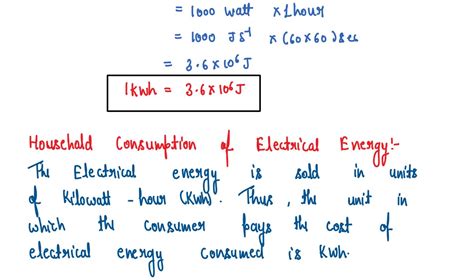 = 1000 watt × 1 hour
= 1000 JS⁻¹ × (60×60) sec
= 3.6×10⁶ J
1 kwh = 3.6×10⁶ J
Household Consumption of Electrical Energy:-
The Electrical energy is sold in units
of Kilowatt - hour (Kwh). Thus, the unit in
which the consumer pays the cost of
electrical energy consumed is Kwh.